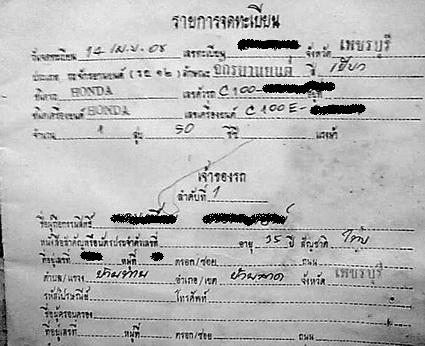 รายการจดทะเบียน
วันจดทะเบียน 14 เม.ย. 08 เลขทะเบียน จังหวัด เพชรบุรี
ประเภท รถจักรยานยนต์ (รย ๑๒) ลักษณะ จักรยานยนต์ สี เขียว
ยี่ห้อรถ HONDA เลขตัวรถ C100- อยู่ที่
ยี่ห้อเครื่องยนต์ HONDA เลขเครื่องยนต์ C100E-
จำนวน 1 สูบ 50 ซีซี แรงม้า
เจ้าของรถ
ลำดับที่ 1
ชื่อผู้ถือกรรมสิทธิ์
อายุ 35 ปี สัญชาติ ไทย
ที่อยู่เลขที่ หมู่ที่ ตรอก/ซอย ถนน
ตำบล/แขวง อำเภอ/เขต บ้านลาด จังหวัด เพชรบุรี
รหัสไปรษณีย์ โทรศัพท์
ชื่อผู้ครอบครอง
ที่อยู่เลขที่ หมู่ที่ ตรอก/ซอย ถนน